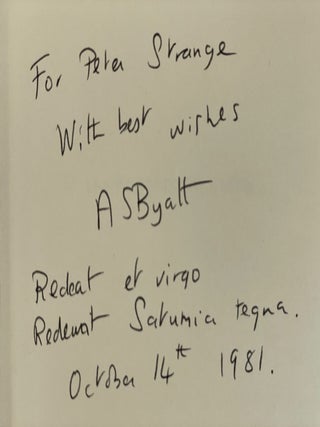 For Peter Strange
With best wishes
A S Byatt
Redeat et virgo
Redeunt Saturnia regna.
October 14th 1981.